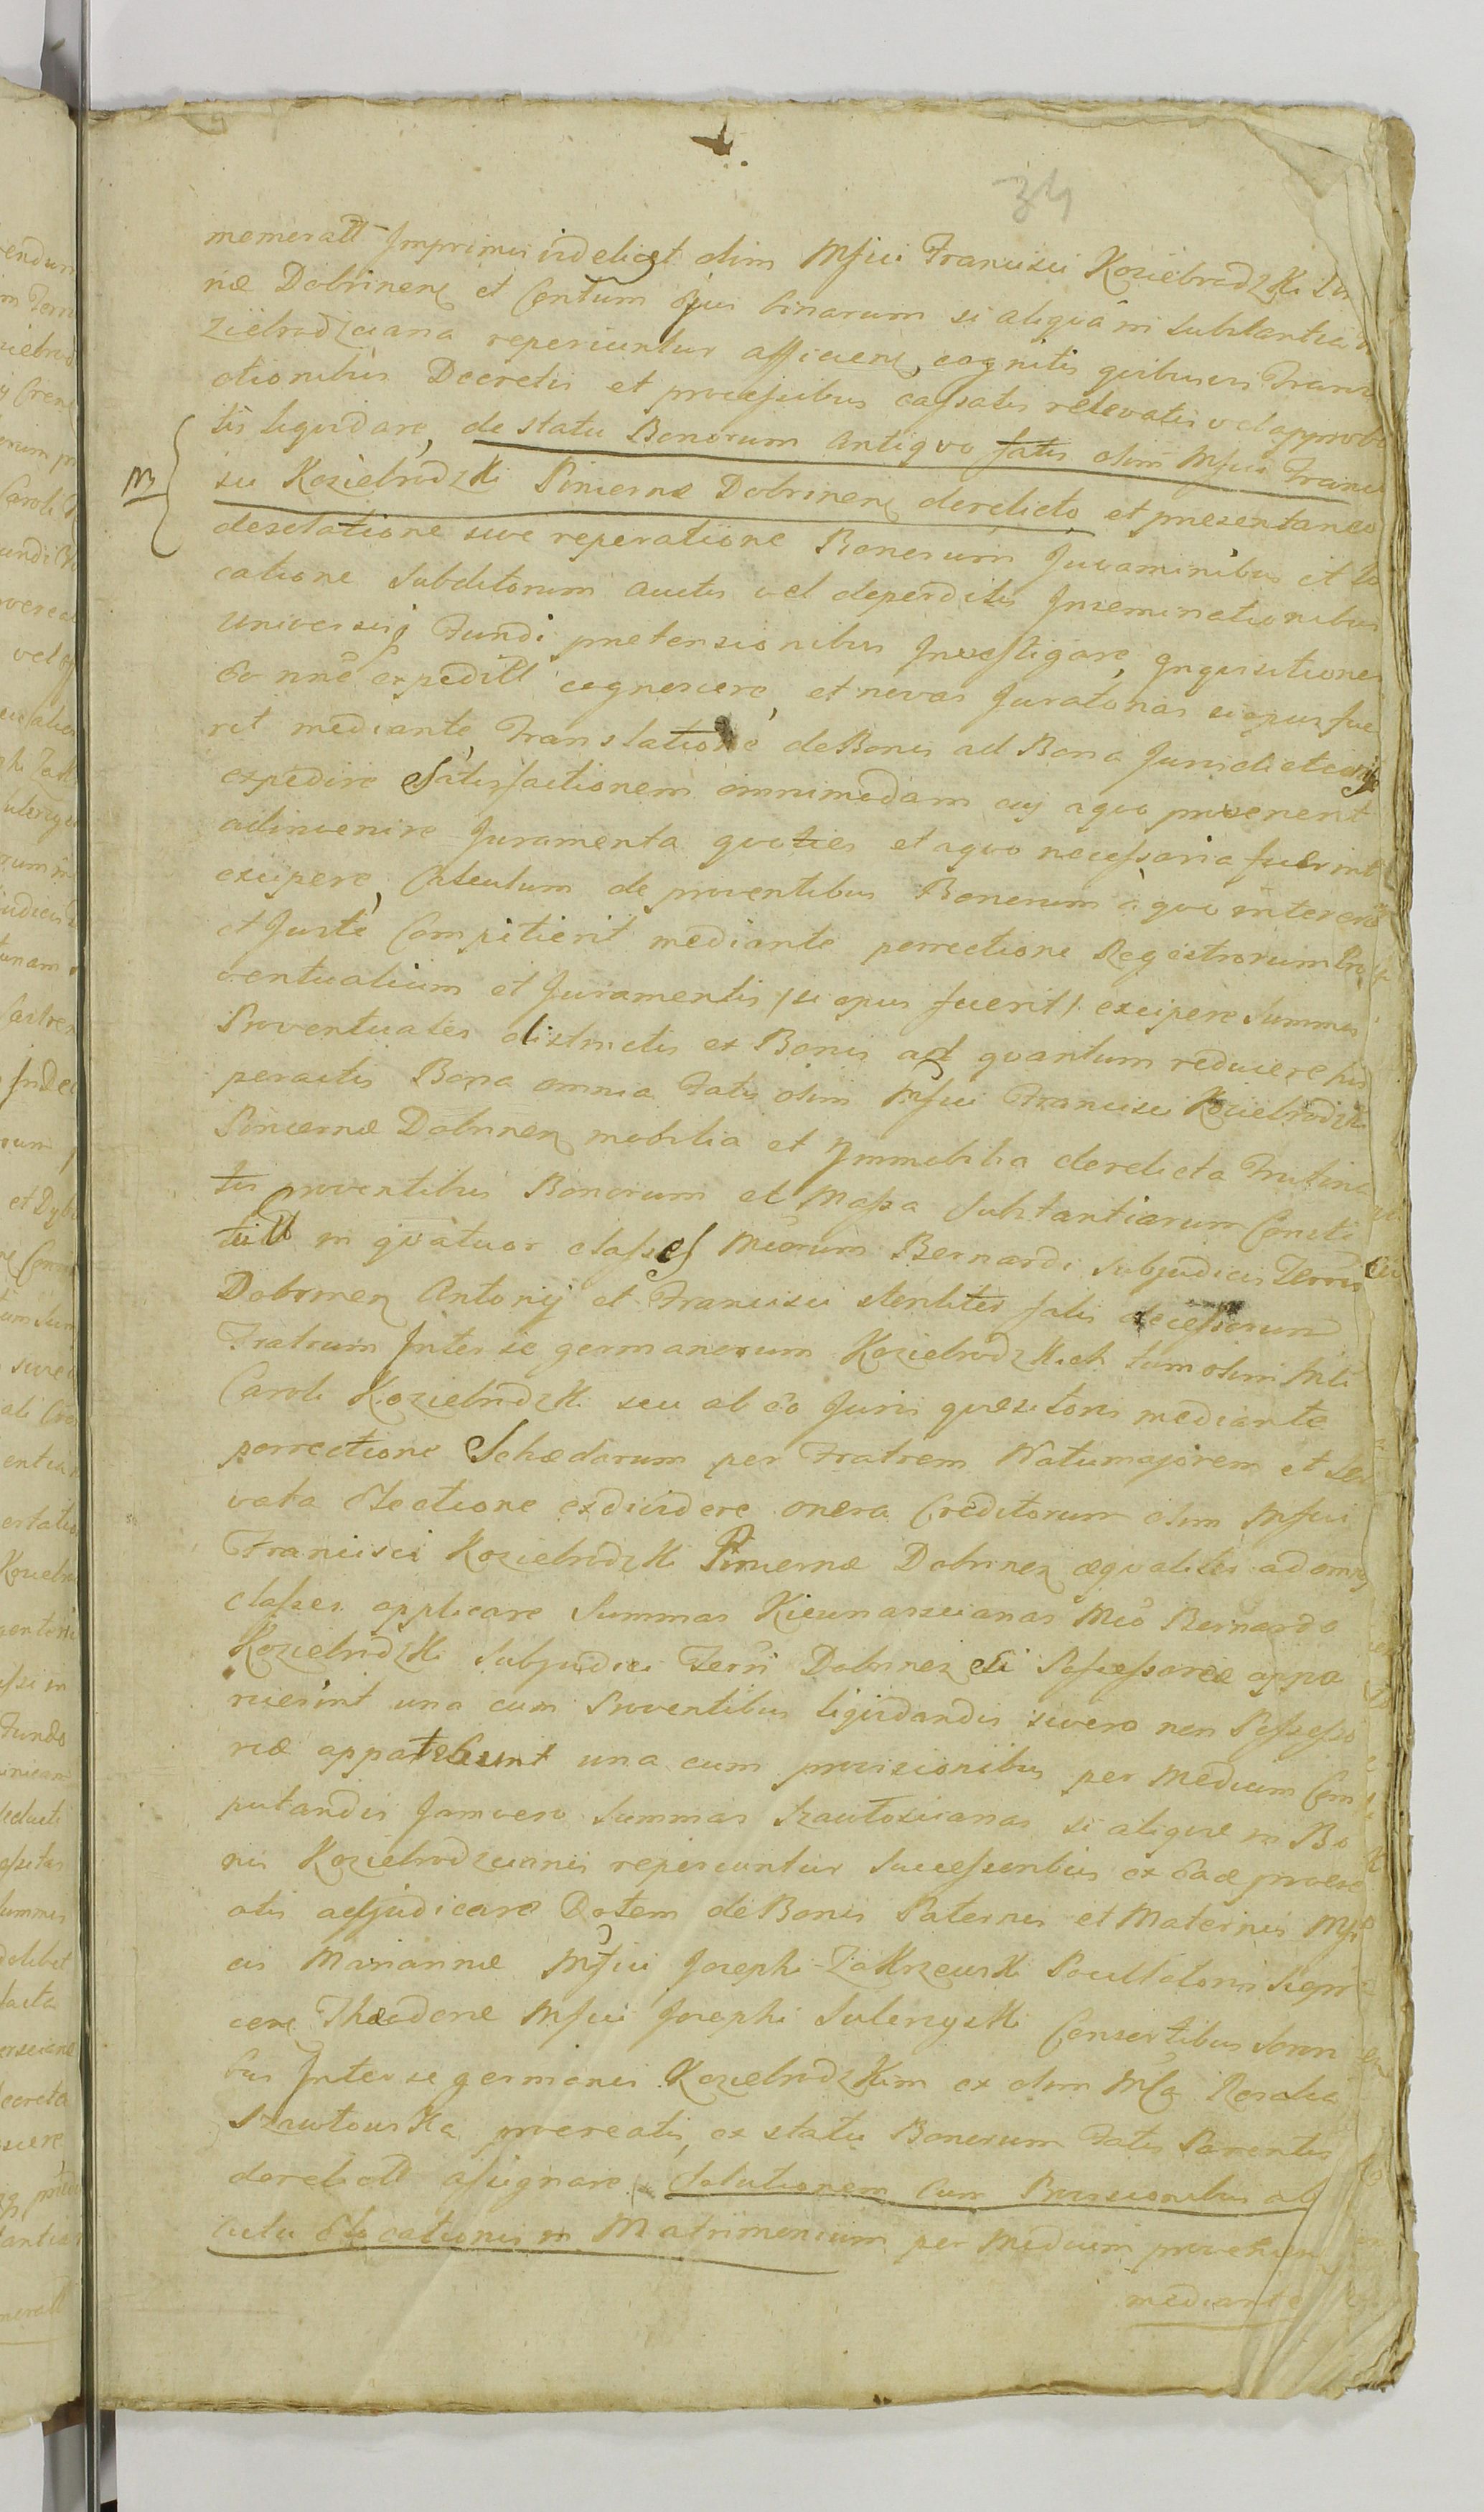 34
memoratt Imprimis videlicet olim Mfici Francisci Koziebrodzki Pin
næ Dobrinenȝ et Centum opus binarum si aliqua in substantia
ziebrodzciana reperiuntur afficienȝ, cognitis quibusvis Trans
ctionibus Decretis et processibus cassatis relevatis vel approba
tis liquidare, de statu Bonorum antiquo fatis olim Mfici Franci
M
sci Koziebrodzki Pincernæ Dobrinenȝ derelicto et presentaneo
desolatione sive reperatione Bonorum Juvaminibus et lo
catione Subditorum auctis vel deperditis Inseminationibus
universisq Fundi pretensionibus Investigare, Inquisitiones
eo nne expeditt cognoscere, et novas Juratorias si opus fue
rit mediante Translatione de Bonis ad Bona Jurisdictionis
expedire Satisfactionem omnimodam cuj a quo provenerit
adinvenire Juramenta quoties et a quo necessaria fuerint
excipere, Calculum de proventibus Bonorum a quo intererit
et Juste Competierit mediante porrectione Regestrorum Pro
ventualium et Juramentis /si opus fuerit/ excipere Summas
Proventuales districtis ex Bonis ad quantum reducere his
peractis Bona omnia Fatis olim Mfici Francisci Koziebrodzki
Pincernæ Dobrinenȝ mobilia et Immobilia derelicta Trutina
tis proventibus Bonorum et Massa Substantiarum Consti
tutt in quatuor classes Mcorum Bernardi Subjudicis Terris
Dobrinenȝ Antonij et Francisci steriliter fatis decessorum
Fratrum Inter se germanorum Koziebrodzkich tum olim Mci
Caroli Koziebrodzki seu ab eo Juris quæsitoris mediante
porrectione Schedarum per Fratrem Natumajorem et ser
vata Electione exdividere onera Creditorum olim Mfici
Francisci Koziebrodzki Pincernæ Dobrinenȝ æqualiter ad omnes
classes applicare Summas Kieunarscianas Mco Bernardo
Koziebrodzki Subjudici Terri Dobrinenȝ Si Possessoriæ appa
ruerint una cum Proventibus liquidandis si vero non Possesso
riæ apparebunt una cum provisionibus per Medium Com
putandis Jam vero Summas Szawłoscianas si aliquæ in Bo
nis Koziebrodzcianis reperiuntur Successoribus ex Eadem procre
atis adjudicare Dotem de Bonis Paternis et Maternis Mfi
cis Mariannæ Mfici Josephi Zakrzewski Pocillatoris Sierp
cenȝ Theodoræ Mfici Josephi Sulerzyski Consortibus Soror
bus Inter se germanis Koziebrodzkim ex olim Mfca Rosalia
Szawłowska procreatis, ex statu Bonorum Fatis Parentis
derelictt assignare, Solutionem cum Provisionibus ab
actu Elocationis in Matrimonium per Medium proventuum
mediante